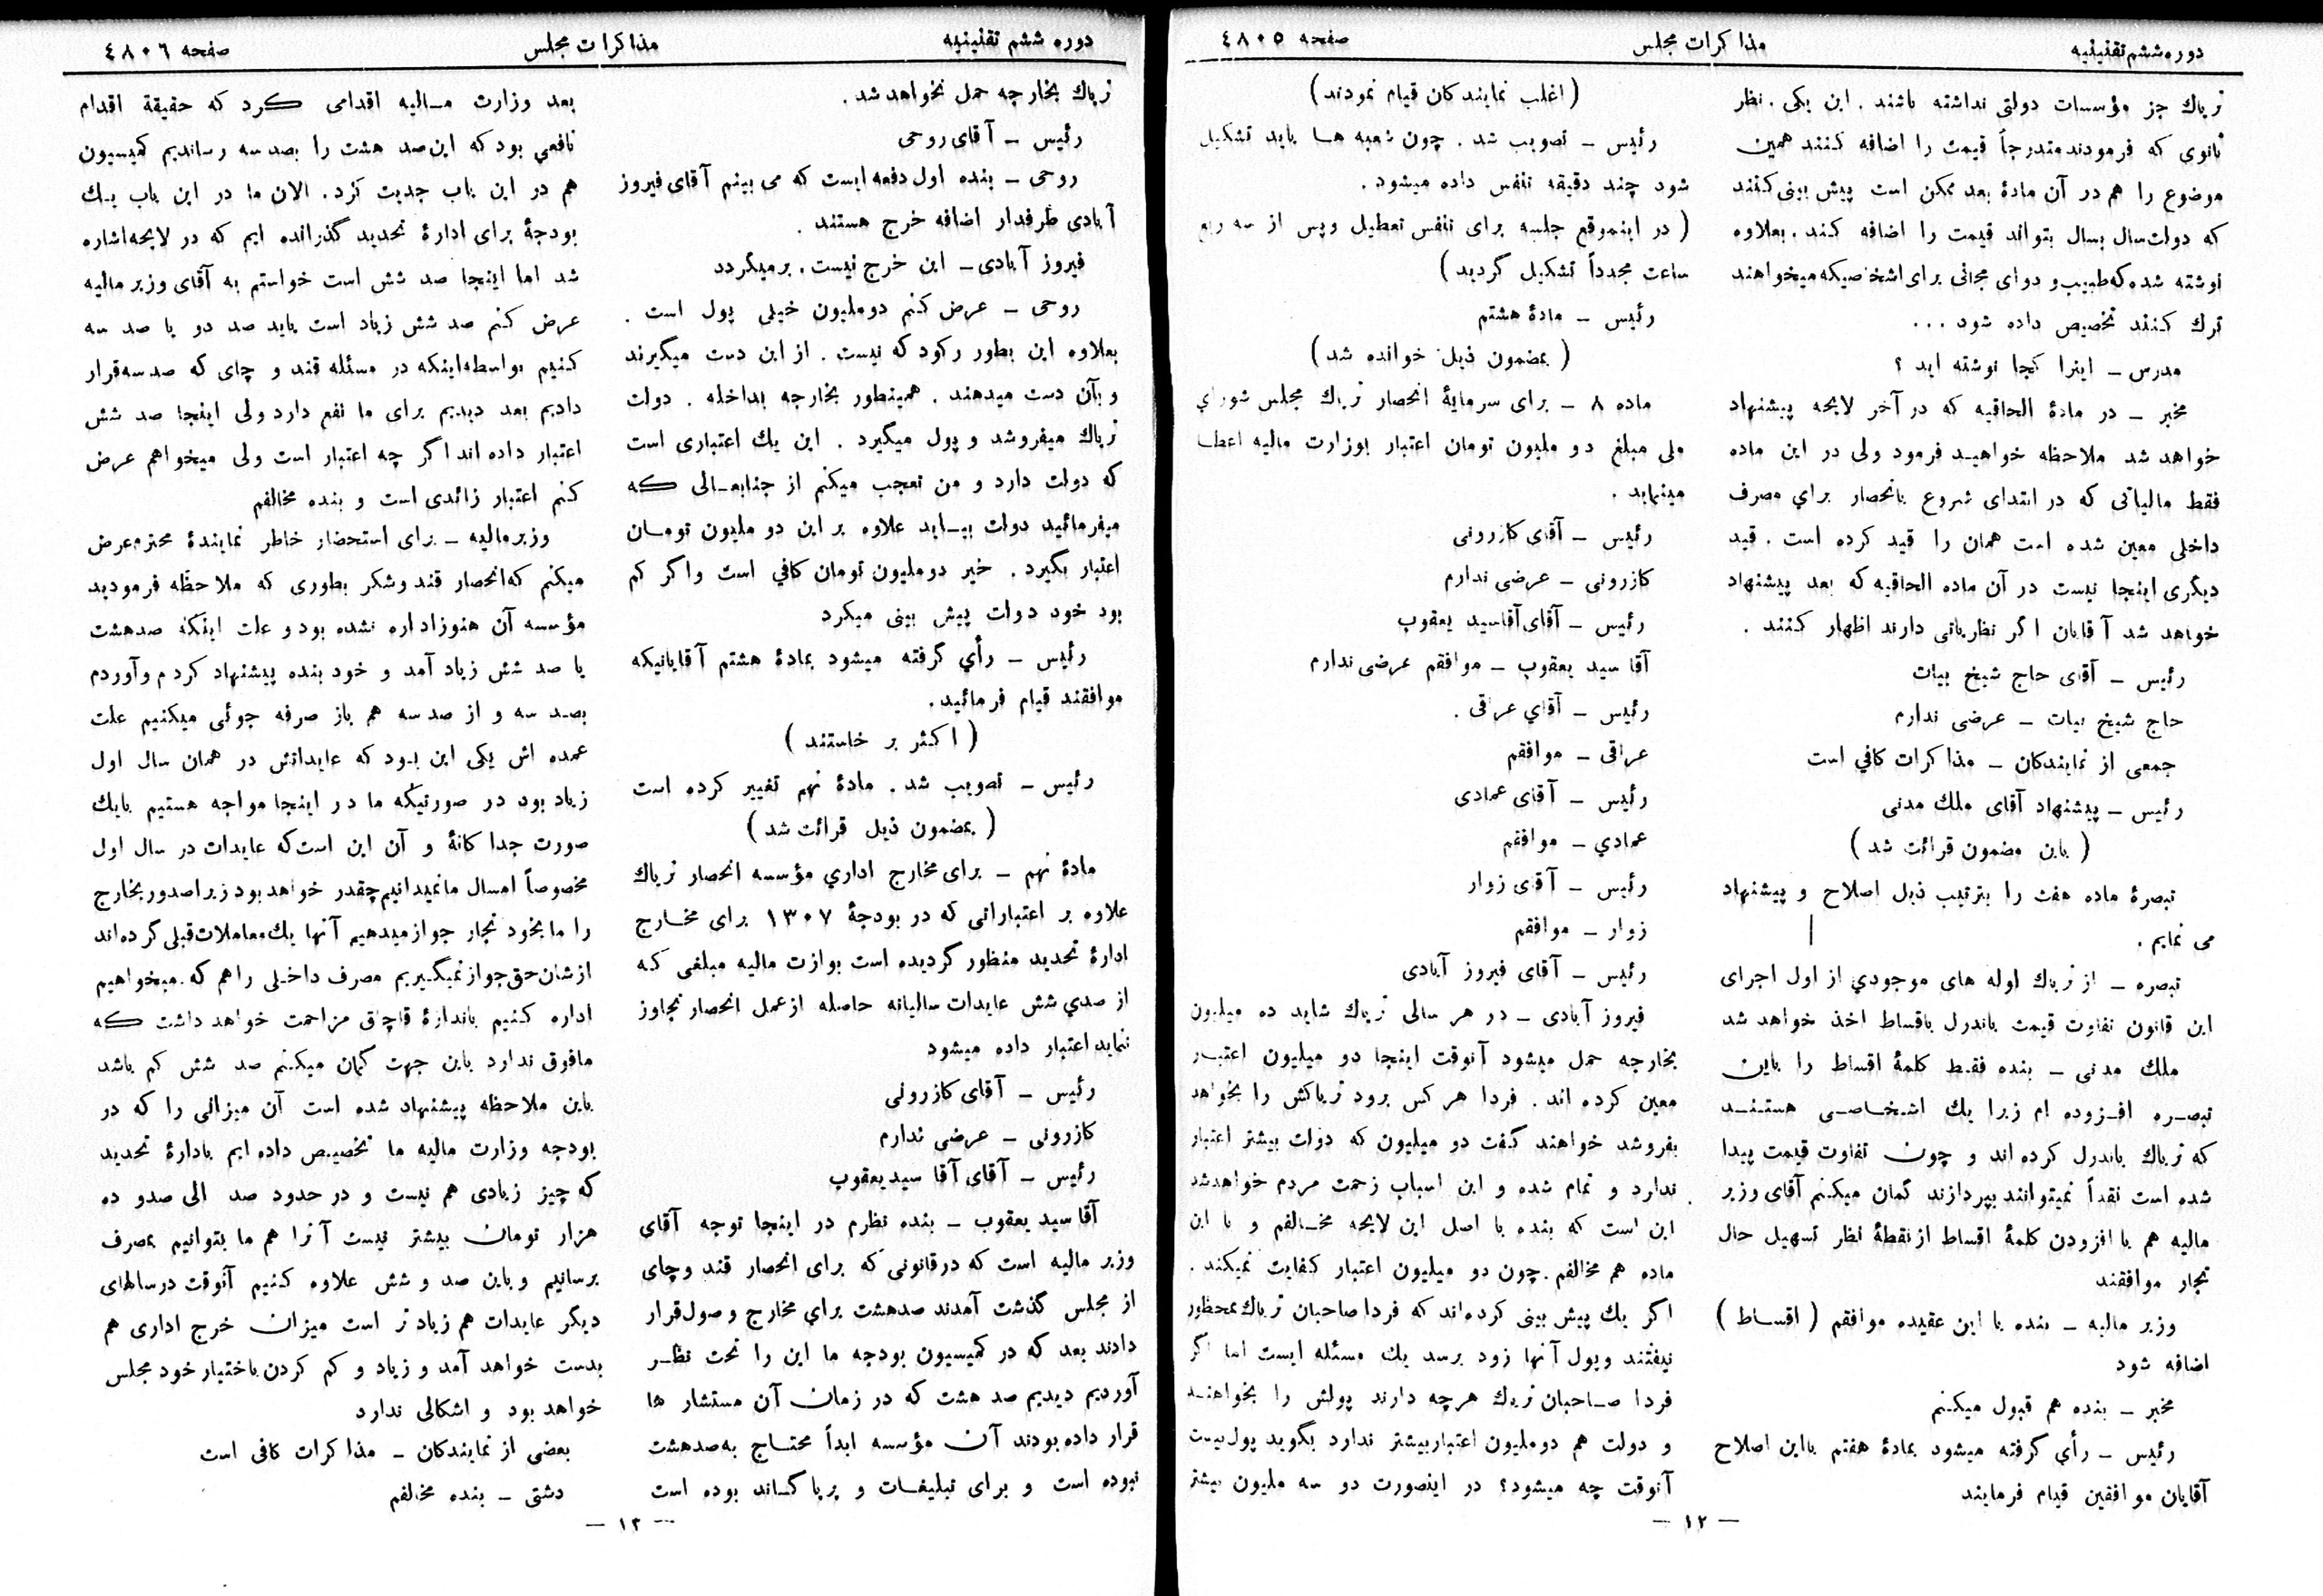 دوره ششم تقنینیه
مذاکرات مجلس
صفحه ٤٨٠٥
تریاك جز مؤسسات دولتی نداشته باشند . این یکی . نظر
ثانوی که فرمودند متدرجاً قیمت را اضافه کنند همین
موضوع را هم در آن مادهٔ بعد ممکن است پیش بینی کنند
که دولت سال بسال بتواند قیمت را اضافه کند . بعلاوه
نوشته شده که طبیب و دوای مجانی برای اشخاصیکه میخواهند
ترك کنند تخصیص داده شود ...
مدرس ـ اینرا کجا نوشته اید ؟
مخبر ـ در مادهٔ الحاقیه که در آخر لایحه پیشنهاد
خواهد شد ملاحظه خواهید فرمود ولی در این ماده
فقط مالیاتی که در ابتدای شروع بانحصار برای مصرف
داخلی معین شده است همان را قید کرده است . قید
دیگری اینجا نیست در آن ماده الحاقیه که بعد پیشنهاد
خواهد شد آقایان اگر نظریاتی دارند اظهار کنند .
رئیس ـ آقای حاج شیخ بیات
حاج شیخ بیات ـ عرضی ندارم
جمعی از نمایندگان ـ مذاکرات کافی است
رئیس ـ پیشنهاد آقای ملك مدنی
( باین مضمون قرائت شد )
تبصرهٔ ماده هفت را بترتیب ذیل اصلاح و پیشنهاد
می نمایم .
تبصره ـ از تریاك لوله های موجودی از اول اجرای
این قانون تفاوت قیمت باندرل باقساط اخذ خواهد شد
ملك مدنی ـ بنده فقط کلمهٔ اقساط را باین
تبصره افزوده ام زیرا یك اشخاصی هستند
که تریاك باندرل کرده اند و چون تفاوت قیمت پیدا
شده است نقداً نمیتوانند بپردازند گمان میکنم آقای وزیر
مالیه هم با افزودن کلمهٔ اقساط از نقطهٔ نظر تسهیل حال
تجار موافقند
وزیر مالیه ـ بنده با این عقیده موافقم ( اقساط )
اضافه شود
مخبر ـ بنده هم قبول میکنم
رئیس ـ رأی گرفته میشود بمادهٔ هفتم بااین اصلاح
آقایان موافقین قیام فرمایند
( اغلب نمایندکان قیام نمودند )
رئیس ـ تصویب شد . چون شعبه ها باید تشکیل
شود چند دقیقه تنفس داده میشود .
( در اینموقع جلسه برای تنفس تعطیل وپس از سه ربع
ساعت مجدداً تشکیل گردید )
رئیس ـ مادهٔ هشتم
( بمضمون ذیل خوانده شد )
ماده ٨ ـ برای سرمایهٔ انحصار تریاك مجلس شورای
ملی مبلغ دو ملیون تومان اعتبار بوزارت مالیه اعطا
مینماید .
رئیس ـ آقای کازرونی
کازرونی ـ عرضی ندارم
رئیس ـ آقای آقاسید یعقوب
آقا سید یعقوب ـ موافقم عرضی ندارم
رئیس ـ آقای عراقی .
عراقی ـ موافقم
رئیس ـ آقای عمادی
عمادی ـ موافقم
رئیس ـ آقای زوار
زوار ـ موافقم
رئیس ـ آقای فیروز آبادی
فیروز آبادی ـ در هر سالی تریاك شاید ده میلیون
بخارجه حمل میشود آنوقت اینجا دو میلیون اعتبار
معین کرده اند . فردا هر کس برود تریاکش را بخواهد
بفروشد خواهند گفت دو میلیون که دولت بیشتر اعتبار
ندارد و تمام شده و این اسباب زحمت مردم خواهدشد
این است که بنده با اصل این لایحه مخالفم و با این
ماده هم مخالفم . چون دو میلیون اعتبار کفایت نمیکند .
اگر یك پیش بینی کرده اند که فردا صاحبان تریاك بمحظور
نیفتند وپول آنها زود برسد یك مسئله ایست اما اگر
فردا صاحبان تریك هرچه دارند پولش را بخواهند
و دولت هم دوملیون اعتباربیشتر ندارد بگوید پول نیست
آنوقت چه میشود؟ در اینصورت دو سه ملیون بیشتر
ـ ١٢ ـ
دوره ششم تقنینیه
مذاکرات مجلس
صفحه ٤٨٠٦
تریاك بخارجه حمل نخواهد شد .
رئیس ـ آقای روحی
روحی ـ بنده اول دفعه ایست که می بینم آقای فیروز
آبادی طرفدار اضافه خرج هستند .
فیروز آبادی ـ این خرج نیست . برمیگردد
روحی ـ عرض کنم دوملیون خیلی پول است .
بعلاوه این بطور رکود که نیست . از این دست میگیرند
وبآن دست میدهند . همینطور بخارجه بداخله . دولت
تریاك میفروشد و پول میگیرد . این یك اعتباری است
که دولت دارد و من تعجب میکنم از جنابعالی که
میفرمائید دولت بیاید علاوه بر این دو ملیون تومان
اعتبار بگیرد . خیر دوملیون تومان کافی است واگر کم
بود خود دولت پیش بینی میکرد
رئیس ـ رأی گرفته میشود بمادهٔ هشتم آقایانیکه
موافقند قیام فرمائید .
( اکثر بر خاستند )
رئیس ـ تصویب شد . مادهٔ نهم تغییر کرده است
( بمضمون ذیل قرائت شد )
مادهٔ نهم ـ برای مخارج اداری مؤسسه انحصار تریاك
علاوه بر اعتباراتی که در بودجهٔ ١٣٠٧ برای مخارج
ادارهٔ تحدید منظور گردیده است بوازت مالیه مبلغی که
از صدی شش عایدات سالیانه حاصله ازعمل انحصار تجاوز
ننماید اعتبار داده میشود
رئیس ـ آقای کازرونی
کازرونی ـ عرضی ندارم
رئیس ـ آقای آقا سید یعقوب
آقا سید یعقوب ـ بنده نظرم در اینجا توجه آقای
وزیر مالیه است که درقانونی که برای انحصار قند وچای
از مجلس گذشت آمدند صدهشت برای مخارج وصول قرار
دادند بعد که در کمیسیون بودجه ما این را تحت نظر
آوردیم دیدیم صد هشت که در زمان آن مستشار ها
قرار داده بودند آن مؤسسه ابداً محتاج به صدهشت
نبوده است و برای تبلیغات و پرپاکاند بوده است
بعد وزارت مالیه اقدامی کرد که حقیقة اقدام
نافعی بود که این صد هشت را بصد سه رساندیم کمیسیون
هم در این باب جدیت کرد . الان ما در این باب یك
بودجهٔ برای ادارهٔ تحدید گذرانده ایم که در لایحه اشاره
شد اما اینجا صد شش است خواستم به آقای وزیر مالیه
عرض کنم صد شش زیاد است باید صد دو یا صد سه
کنیم بواسطه اینکه در مسئله قند و چای که صد سه قرار
دادیم بعد دیدیم برای ما نفع دارد ولی اینجا صد شش
اعتبار داده اند اگر چه اعتبار است ولی میخواهم عرض
کنم اعتبار زائدی است و بنده مخالفم
وزیر مالیه ـ برای استحضار خاطر نمایندهٔ محترم عرض
میکنم که انحصار قند وشکر بطوری که ملاحظه فرمودید
مؤسسه آن هنوز اداره نشده بود و علت اینکه صدهشت
یا صد شش زیاد آمد و خود بنده پیشنهاد کردم وآوردم
بصد سه و از صد سه هم باز صرفه جوئی میکنیم علت
عمده اش یکی این بود که عایداتش در همان سال اول
زیاد بود در صورتیکه ما در اینجا مواجه هستیم بایك
صورت جدا کانهٔ و آن این است که عایدات در سال اول
مخصوصاً امسال مانمیدانیم چقدر خواهد بود زیرا صدور بخارج
را ما بخود تجار جواز میدهیم آنها یك معاملات قبلی کرده اند
ازشان حق جواز نمیگیریم مصرف داخلی راهم که میخواهیم
اداره کنیم باندازهٔ قاچاق مزاحمت خواهد داشت که
مافوق ندارد باین جهت گمان میکنم صد شش کم باشد
باین ملاحظه پیشنهاد شده است آن میزانی را که در
بودجه وزارت مالیه ما تخصیص داده ایم بادارهٔ تحدید
که چیز زیادی هم نیست و در حدود صد الی صدو ده
هزار تومان بیشتر نیست آنرا هم ما بتوانیم بمصرف
برسانیم و باین صد و شش علاوه کنیم آنوقت درسالهای
دیگر عایدات هم زیاد تر است میزان خرج اداری هم
بدست خواهد آمد و زیاد و کم کردن باختیار خود مجلس
خواهد بود و اشکالی ندارد
بعضی از نمایندکان ـ مذاکرات کافی است
دشتی ـ بنده مخالفم
ـ ١٣ ـ